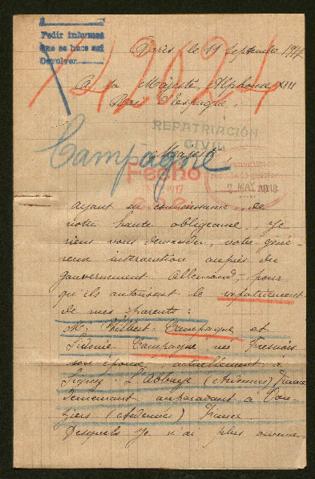 Pedir informes
que se hace así
Devolver
Paris, le 19 Septembre 1917
42024
A Sa Majesté Alphonse XIII
Roi d'Espagne.
REPATRIACIÓN
CIVIL
Majesté
Campagne
Fecho
2 MAY 1918
ayant eu connaissance de
votre haute obligeance, Je
viens vous demander, votre géné-
reuse intervention auprès du
gouvernement Allemand, pour
qu'ils autorisent le rapatriement
de mes parents:
Mr. Philbert Campagne et
Campagne née
son épouse actuellement à
Signy-L'Abbaye (Ardennes) France
Demeurant auparavant à Vou-
ziers (Ardennes) France
Desquels Je n'ai plus